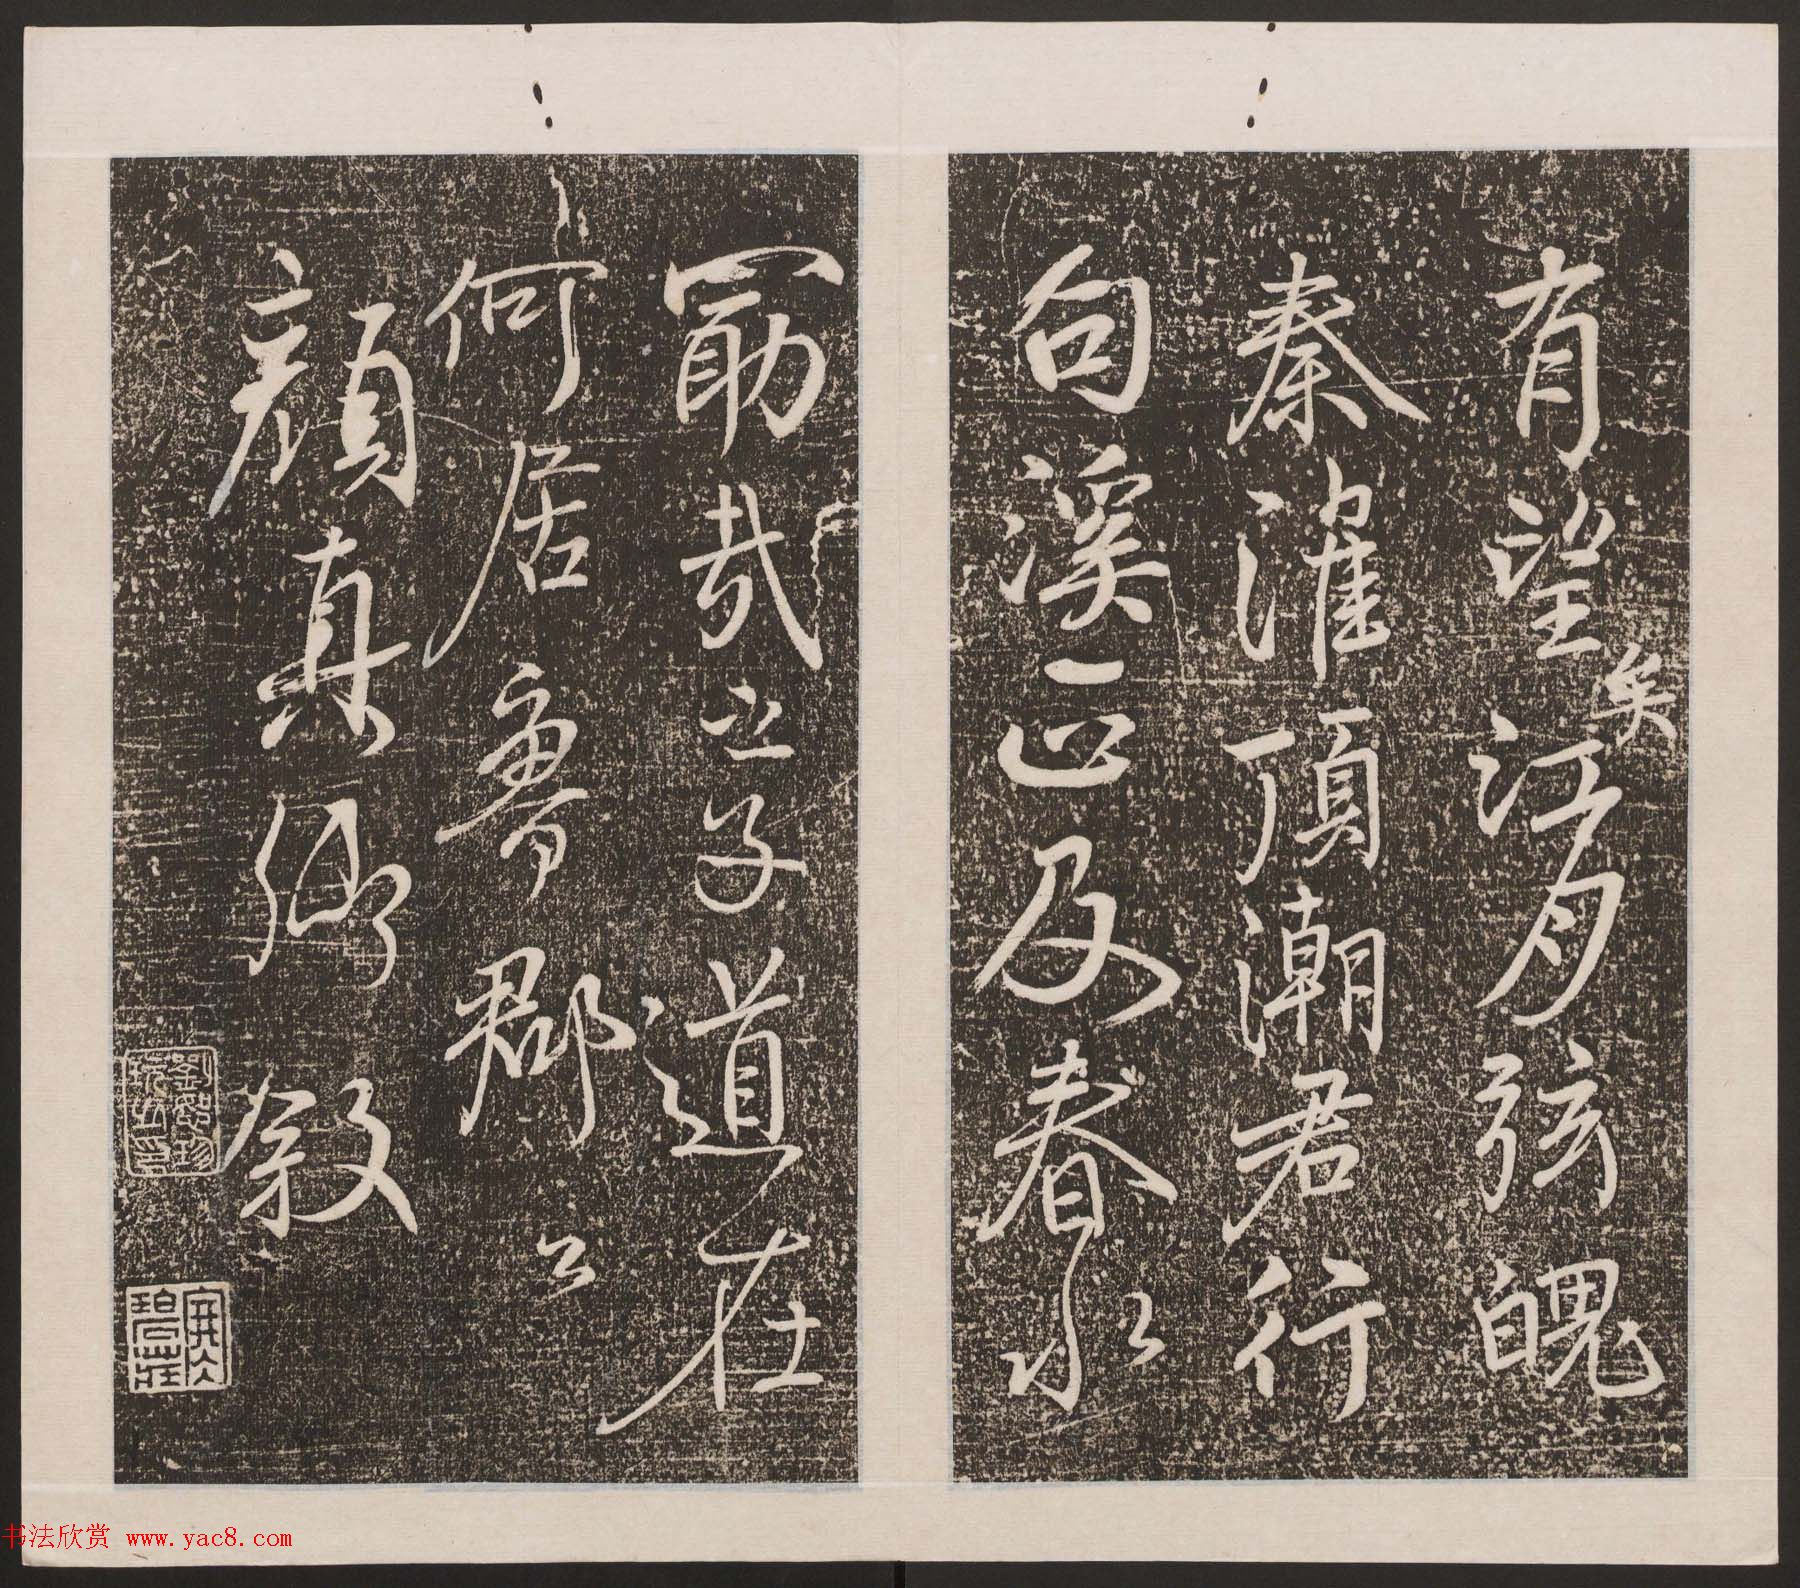 有望矣江月弦魄
秦淮頂潮君行
句溪正及春水
勗哉之子道在
何居魯郡公
顏真卿敘
書法欣赏 www.yac8.com